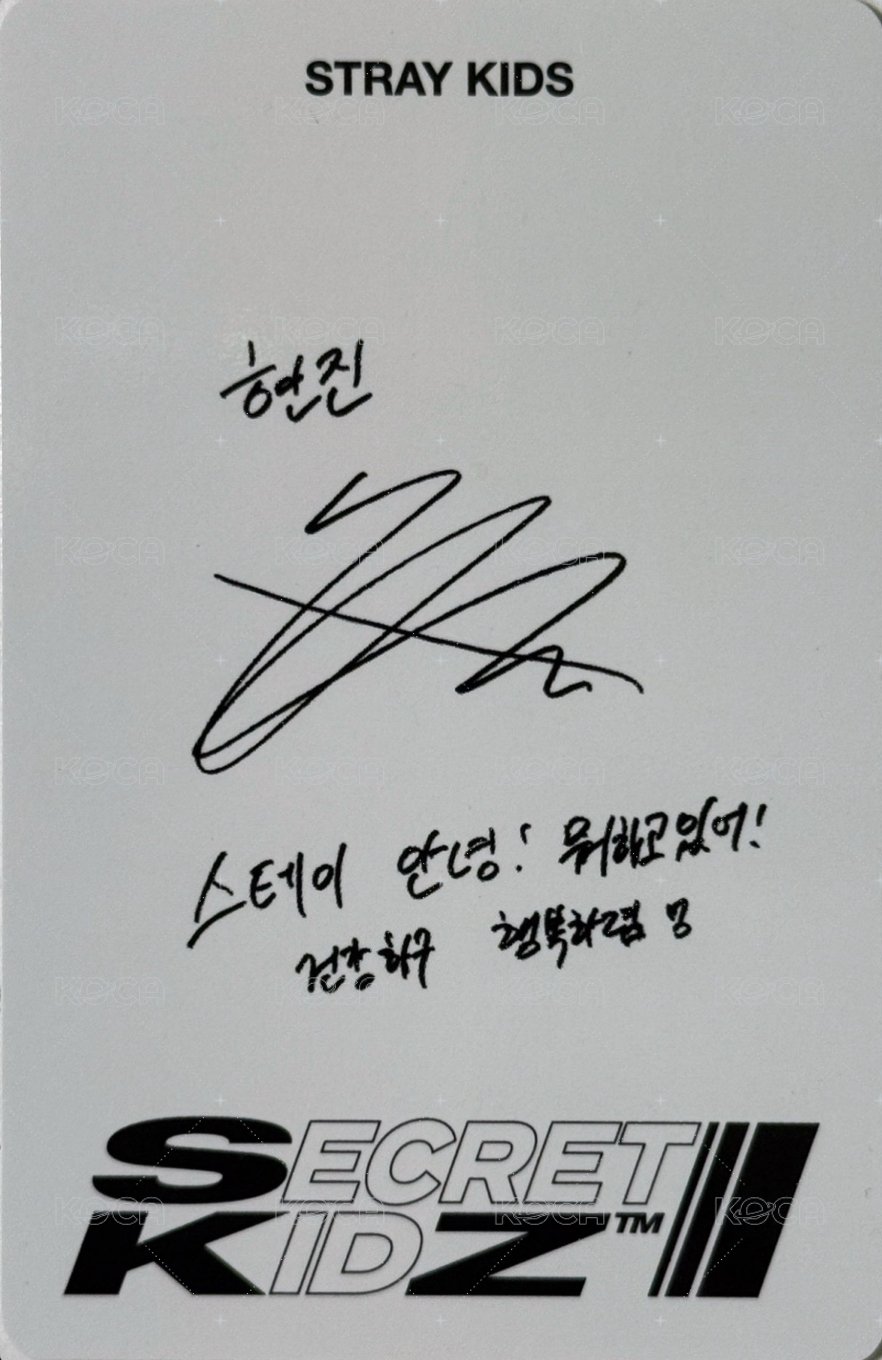 STRAY KIDS
현진
스테이 안녕! 뭐하고있어!
건강하구 행복하렴
SECRET
KIDZ™